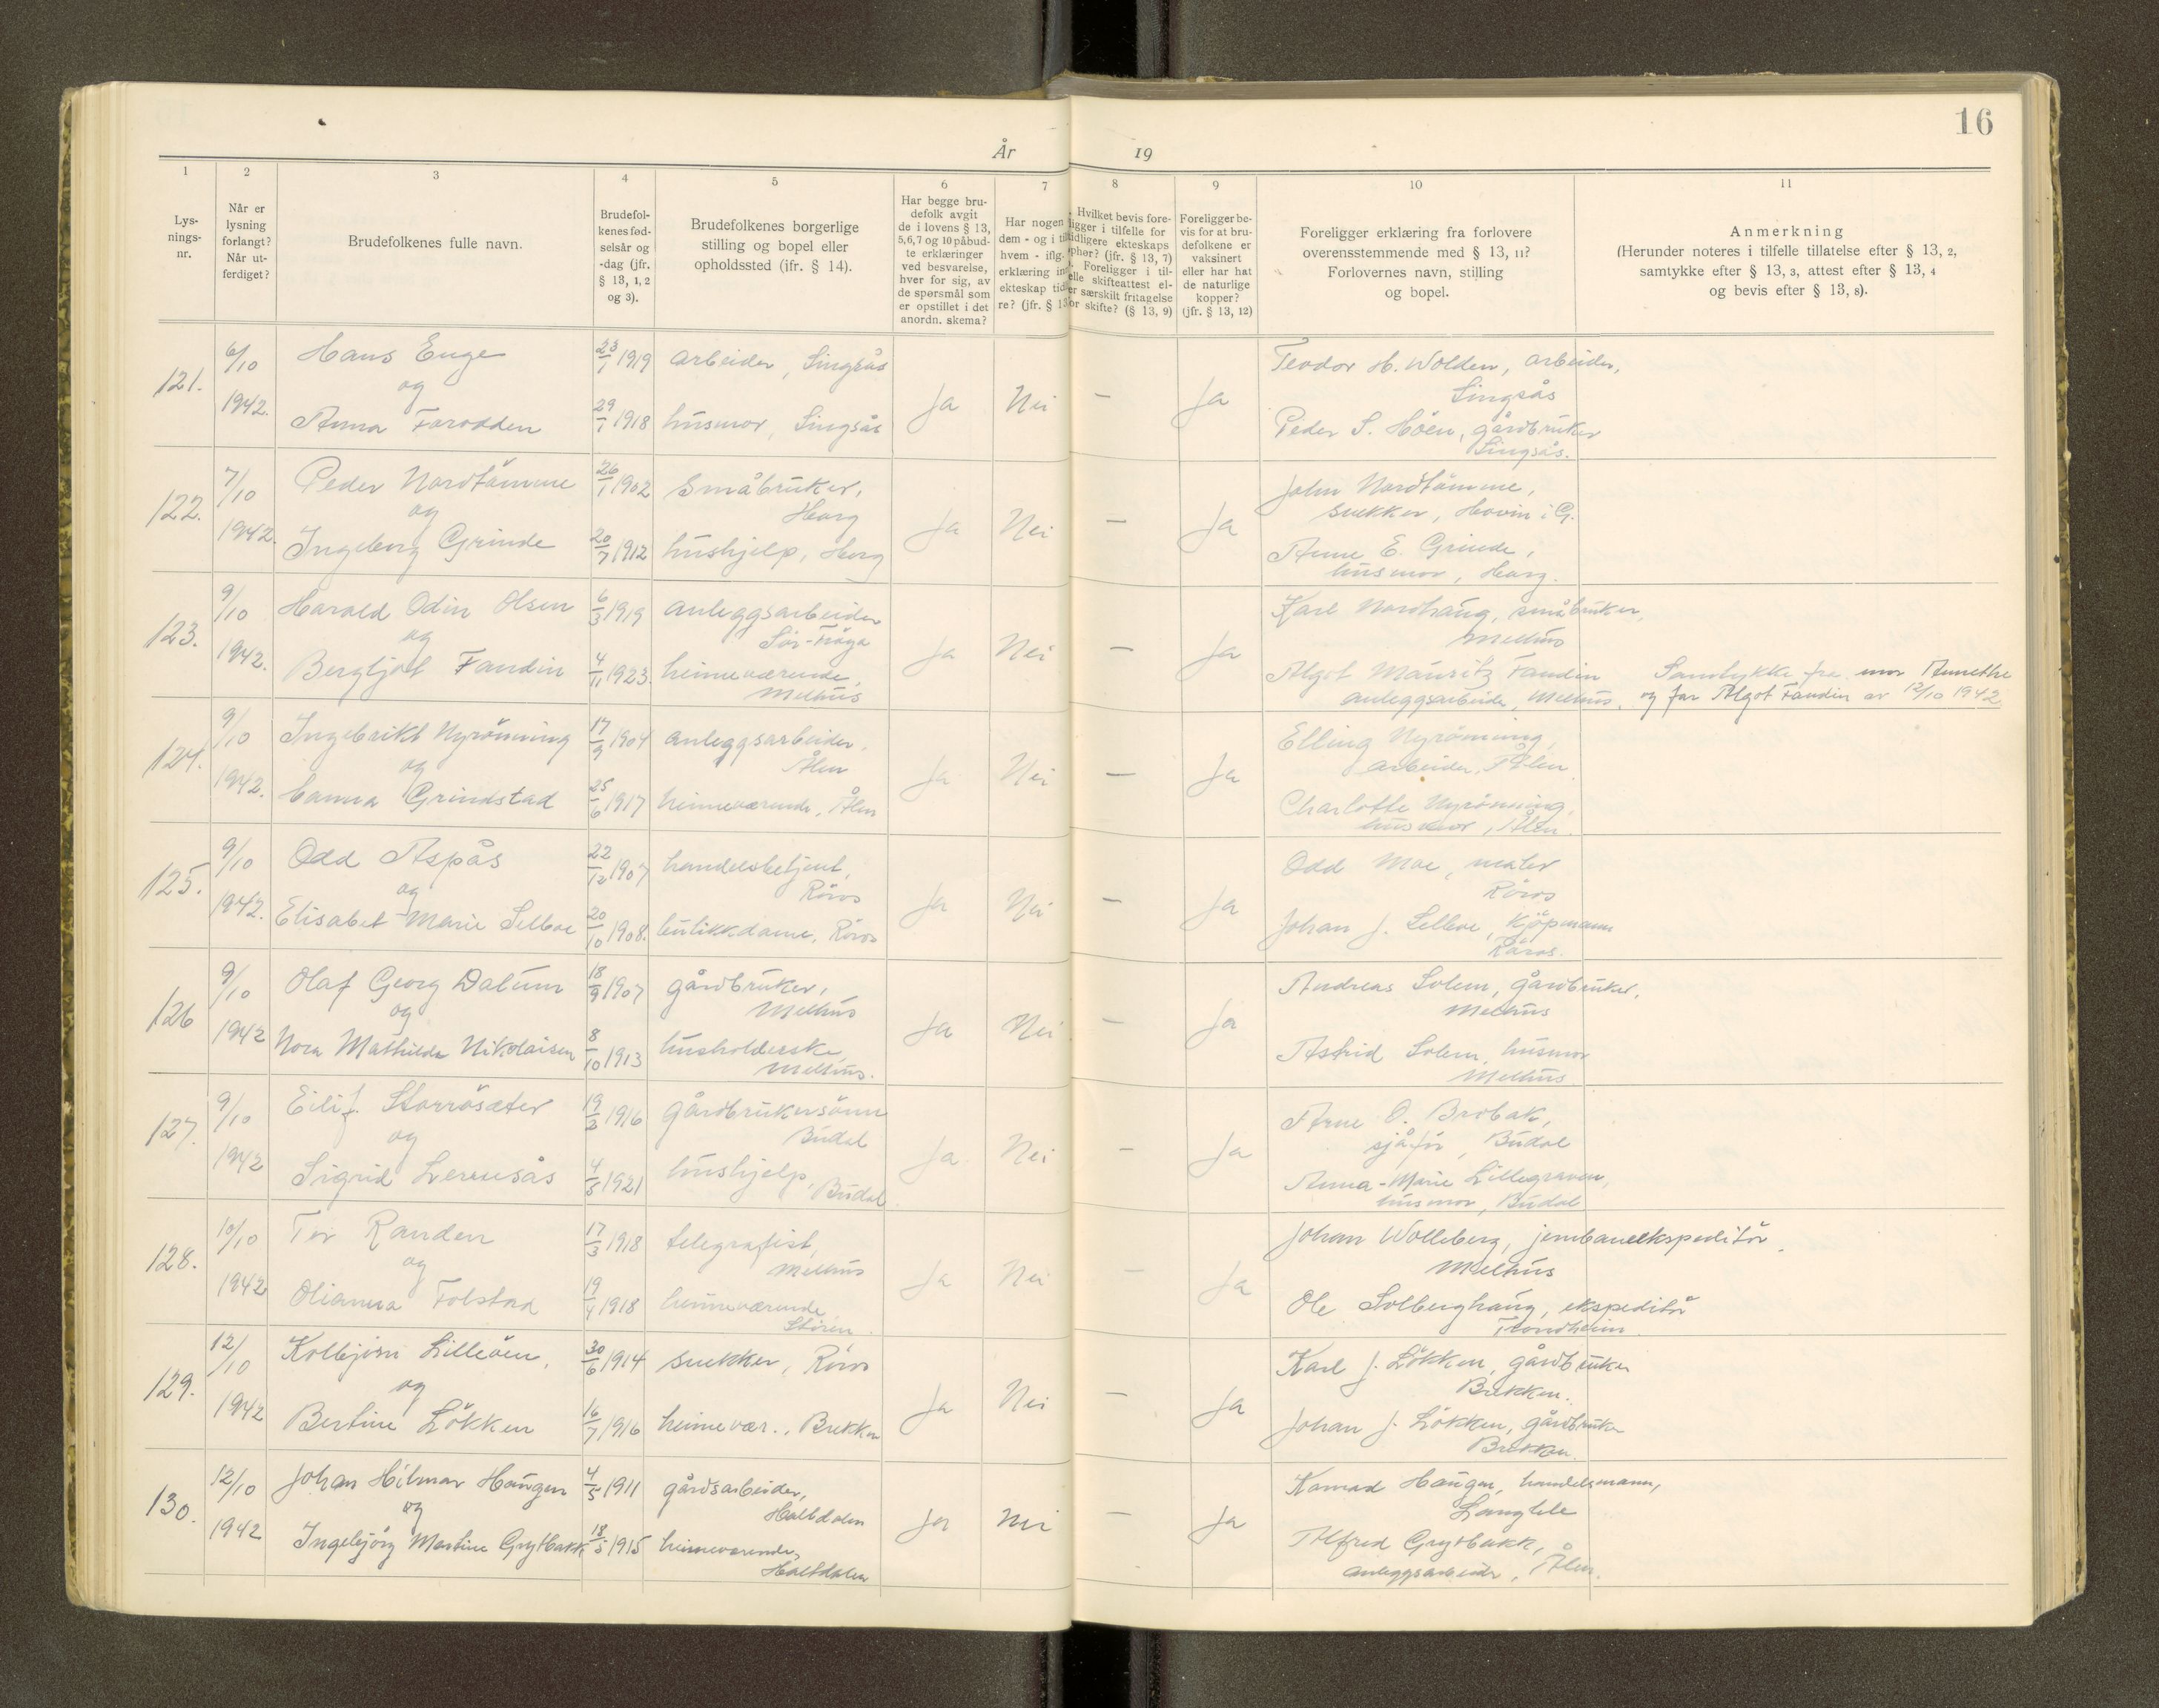 16
År 19
1 2 3 4 5 6 7 8 9 10 11
Lys-
nings-
nr.
Når er
lysning
forlangt?
Når ut-
ferdiget?
Brudefolkenes fulle navn.
Brudefol-
kenes fød-
selsår og
-dag (jfr.
§ 13, 1, 2
og 3).
Brudefolkenes borgerlige
stilling og bopel eller
opholdssted (ifr. § 14).
Har begge bru-
defolk avgit
de i lovens § 13,
5,6,7 og 10 påbud-
te erklæringer
ved besvarelse,
hver for sig, av
de spørsmål som
er opstillet i det
anordn. skema?
Har nogen
dem - og i til
hvem - iflg.
erklæring in
ekteskap tid
re? (jfr. § 13
Hvilket bevis fore-
ligger i tilfelle for
tidligere ekteskaps
ophør? (jfr. § 13, 7)
Foreligger i til-
elle skifteattest el-
er særskilt fritagelse
or skifte? (§ 13, 9)
Foreligger be-
vis for at bru-
defolkene er
vaksinert
eller har hat
de naturlige
kopper?
(jfr. § 13, 12)
Foreligger erklæring fra forlovere
overensstemmende med § 13, 11?
Forlovernes navn, stilling
og bopel.
Anmerkning
(Herunder noteres i tilfelle tillatelse efter § 13, 2,
samtykke efter § 13, 3, attest efter § 13, 4
og bevis efter § 13, 8).
121. 6/10 1942.
Hans Enge 23/1 1919 arbeider, Singsås
og
Anna Forodden 29/1 1918 husmor, Singsås
Ja Nei — Ja
Teodor H. Wolden, arbeider,
Singsås
Peder S. Höen, gårdbruker
Singsås.
122. 7/10 1942.
Peder Nordtömme 26/1 1902 Småbruker,
Horg
og
Ingeborg Grinde 20/7 1912 hushjelp, Horg
Ja Nei — Ja
John Nordtömme,
snekker, Hovin i G.
Anne E. Grinde,
husmor, Horg.
123. 9/10 1942.
Harald Odin Olsen 6/3 1919 anleggsarbeider
Sör-Fröya
og
Bergljot Fandin 4/11 1923. heimeværende,
Melhus
Ja Nei — Ja
Karl Nordhaug, småbruker,
Melhus
Algot Mauritz Fandin
anleggsarbeider, Melhus.
Samtykke fra mor Annethe
og far Algot Fandin av 12/10 1942
124. 9/10 1942.
Ingebrikt Nyrönning 17/9 1904 anleggsarbeider,
Ålen
og
Hanna Grindstad 25/6 1917 heimeværende, Ålen
Ja Nei — Ja
Elling Nyrönning,
arbeider, Ålen
Charlotte Nyrönning,
husmor, Ålen.
125. 9/10 1942.
Odd Aspås 22/12 1907 handelsbetjent,
Röros
og
Elisabet Marie Selboe 20/10 1908. butikkdame, Röros
Ja Nei — Ja
Odd Moe, maler
Röros
Johan J. Selboe, kjöpmann
Röros.
126 9/10 1942
Olaf Georg Dalum 18/9 1907 gårdbruker,
Melhus
og
Nora Mathilde Nikolaisen 8/10 1913 husholderske,
Melhus.
Ja Nei — Ja
Andreas Solem, gårdbruker,
Melhus
Astrid Solem, husmor
Melhus.
127. 9/10 1942
Eilif Storrösæter 19/3 1916 gårdbrukersönn
Budal
og
Sigrid Lernesås 4/8 1921 hushjelp, Budal
Ja Nei — Ja
Arne O. Brobak,
sjåför, Budal
Anna-Marie Lillegraven,
husmor, Budal
128. 10/10 1942
Tor Randen 17/3 1918 telegrafist,
Melhus
og
Olianna Folstad 19/4 1918 heimeværende
Stören.
Ja Nei — Ja
Johan Wolleberg, jernbaneekspeditör,
Melhus
Ole Solberghaug, ekspeditör
Trondheim.
129. 12/10 1942
Kolbjörn Lilleöen, 30/6 1914 snekker, Röros
og
Bertine Lökken 16/7 1916 heimevær., Brekken
Ja Nei — Ja
Karl J. Lökken, gårdbruker
Brekken.
Johan J. Lökken, gårdbruker
Brekken.
130. 12/10 1942
Johan Hilmar Haugen 4/5 1911 gårdsarbeider,
Haltdalen
og
Ingebjörg Martine Grytbakk 18/5 1915 heimeværende,
Haltdalen
Ja Nei — Ja
Konrad Haugen, handelsmann,
Langlete
Alfred Grytbakk,
anleggsarbeider, Ålen.